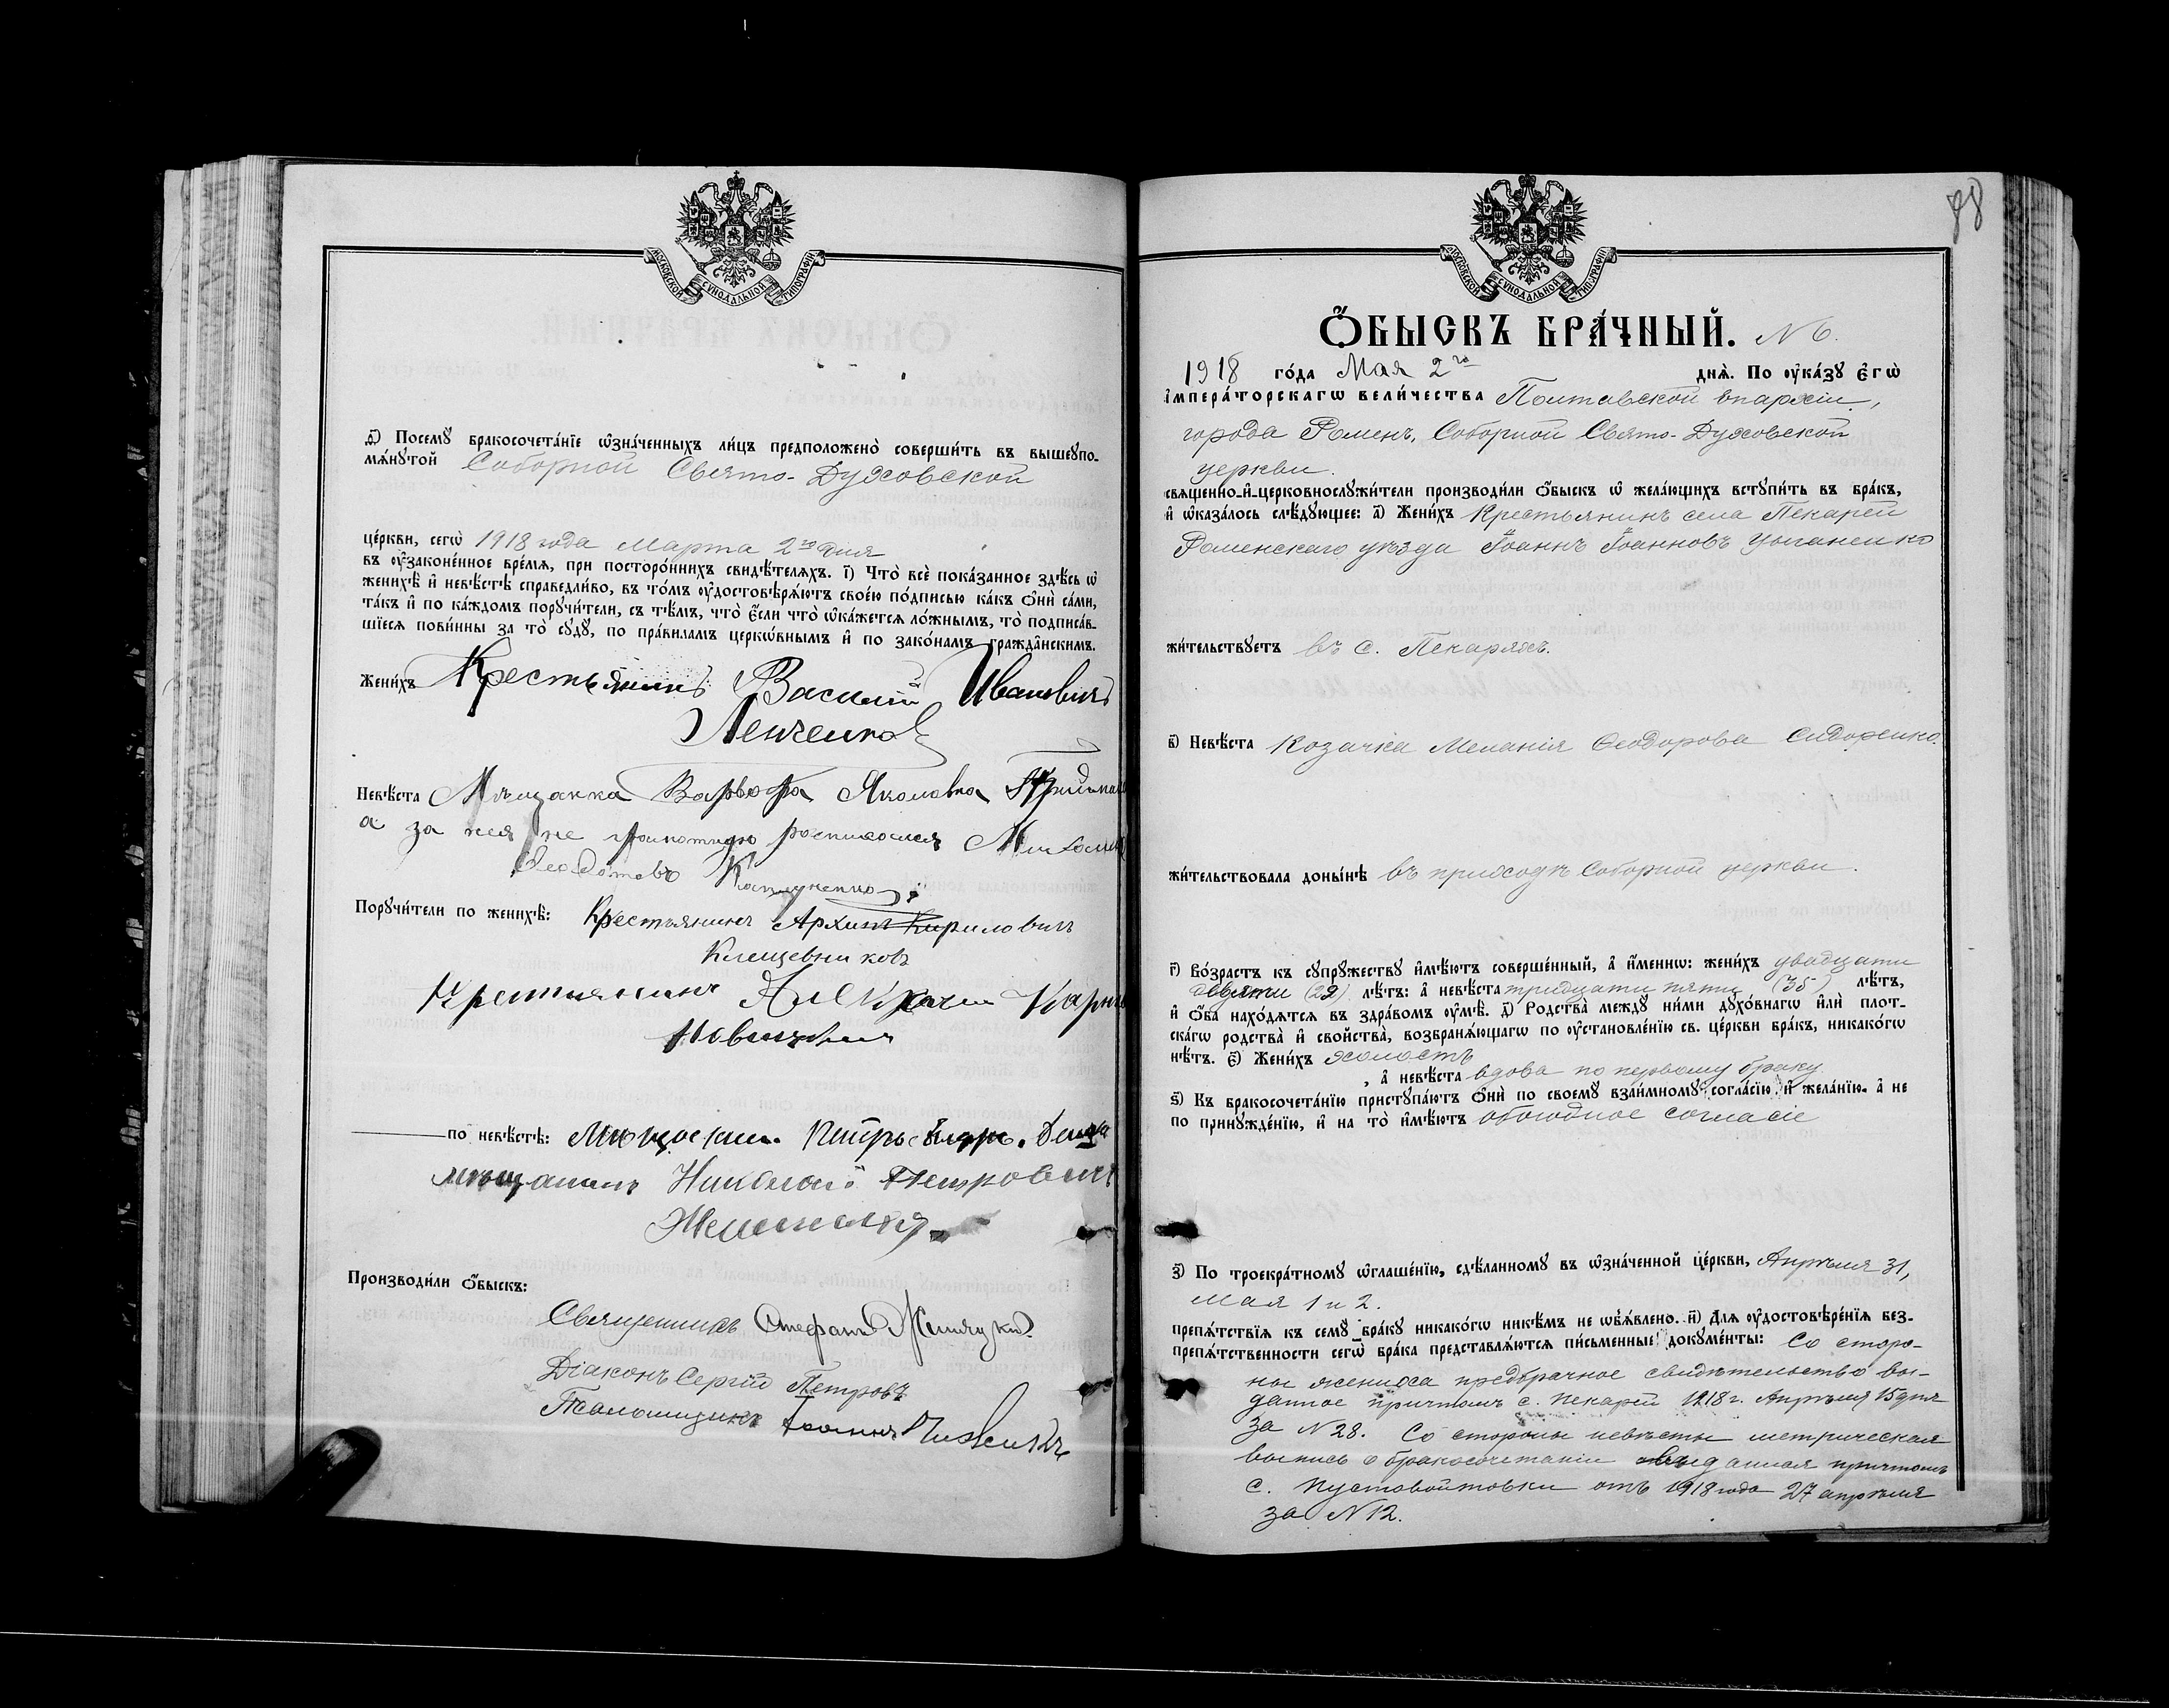 МОСКОВСКОЙ СѴНОДАЛЬНОЙ ТИПОГРАФІИ
д҃) Посемꙋ бракосочета́нїе ѡ҆зна́ченныхъ ли́цъ предположено̀ соверши́ть въ вышеꙋпо-
мѧ́нꙋтой Соборной Свято-Духовской
це́ркви, сегѡ̀ 1918 года Марта 2го дня
въ ᲂу҆зако́ненное вре́мѧ, при посторо́ннихъ свидѣ́телѧхъ. і҃) Что̀ всѐ пока́занное здѣ́сь ѡ҆
женихѣ̀ и҆ невѣ́стѣ справедли́во, въ то́мъ ᲂу҆достовѣрѧ́ютъ свое́ю по́дписью ка́къ ѻ҆нѝ са́ми,
та́къ и҆ по ка́ждомъ порꙋчи́тели, съ тѣ́мъ, что̀ є҆́сли что̀ ѡ҆ка́жетсѧ ло́жнымъ, то̀ подписа́в-
шїесѧ пови́нны за то̀ сꙋдꙋ̀, по пра́виламъ церкѡ́внымъ и҆ по зако́намъ гражда̑нскимъ.
Жени́хъ Крестьянинъ Василій Ивановичъ
Ленченко
Невѣ́ста Мѣщанка Варвара Яковлевна
а за нея не грамотную росписался
Федотовъ
Порꙋчи́тели по женихѣ̀: Крестьянинъ Архипъ Кириловичъ
Клещевниковъ
Крестьянинъ Алексѣй
по невѣ́стѣ: Мѣщанинъ Петръ
мѣщанинъ Николай Петровичъ
Производи́ли ѻ҆́быскъ:
Священникъ Стефанъ
Діаконъ Сергій Петровъ
Псаломщикъ Іоаннъ
88
МОСКОВСКОЙ СѴНОДАЛЬНОЙ ТИПОГРАФІИ
Ѻ҆́БЫСКЪ БРА́ЧНЫЙ. N 6.
1918 го́да Мая 2го днѧ̀. По ᲂу҆ка́зꙋ є҆гѡ̀
і҆мпера́торскагѡ вели́чества Полтавской епархіи,
города Роменъ, Соборной Свято-Духовской
церкви.
свѧще́нно-и҆-церковнослꙋжи́тели производи́ли ѻ҆́быскъ ѡ҆ жела́ющихъ встꙋпи́ть въ бра́къ,
и҆ ѡ҆каза́лось слѣ́дꙋющее: а҃) Жени́хъ Крестьянинъ села Пекарей
Роменскаго уѣзда Іоаннъ Іоанновъ Цыганенко
жи́тельствꙋетъ въ с. Пекаряхъ.
в҃) Невѣ́ста Козачка Меланія Ѳеодорова Сидоренко.
жи́тельствовала доны́нѣ въ приходѣ Соборной церкви.
г҃) Во́зрастъ къ сꙋпрꙋ́жествꙋ и҆мѣ́ютъ соверше́нный, а҆ и҆́меннѡ: жени́хъ двадцати
девяти (29) лѣ́тъ: а҆ невѣ́ста тридцати пяти (35) лѣ́тъ,
и҆ ѻ҆́ба нахо́дѧтсѧ въ здра́вомъ ᲂу҆мѣ̀. д҃) Родства̀ междꙋ̀ ни́ми дꙋхо́внагѡ и҆лѝ плот-
ска́гѡ родства̀ и҆ сво́йства̀, возбранѧ́ющагѡ по ᲂу҆становле́нїю св. це́ркви бра́къ, никако́гѡ
нѣ́тъ. є҃) Жени́хъ холостъ
, а҆ невѣ́ста вдова по первому браку
ѕ҃) Къ бракосочета́нїю пристꙋпа́ютъ ѻ҆нѝ по своемꙋ̀ взаи́мномꙋ согла́сїю и҆ жела́нїю, а҆ не
по принꙋжде́нїю, и҆ на то̀ и҆мѣ́ютъ обоюдное согласіе
з҃) По троекра́тномꙋ ѡ҆глаше́нїю, сдѣ́ланномꙋ въ ѡ҆зна́ченной це́ркви, Апрѣля 31,
Мая 1 и 2.
препѧ́тствїѧ къ семꙋ̀ бра́кꙋ никако́гѡ никѣ́мъ не ѡ҆б̾ѧ́влено. и҃) Длѧ ᲂу҆достовѣре́нїѧ без-
препѧ́тственности сегѡ̀ бра́ка представлѧ́ютсѧ пи́сьменные докꙋме́нты: Со сторо-
ны жениха предбрачное свидѣтельство вы-
данное причтомъ с. Пекарей 1918 г. Апрѣля 15 дня
за N 28. Со стороны невѣсты метрическая
выпись о бракосочетаніи выданная причтомъ
с. Пустовойтовки отъ 1918 года 27 апрѣля
за N 12.